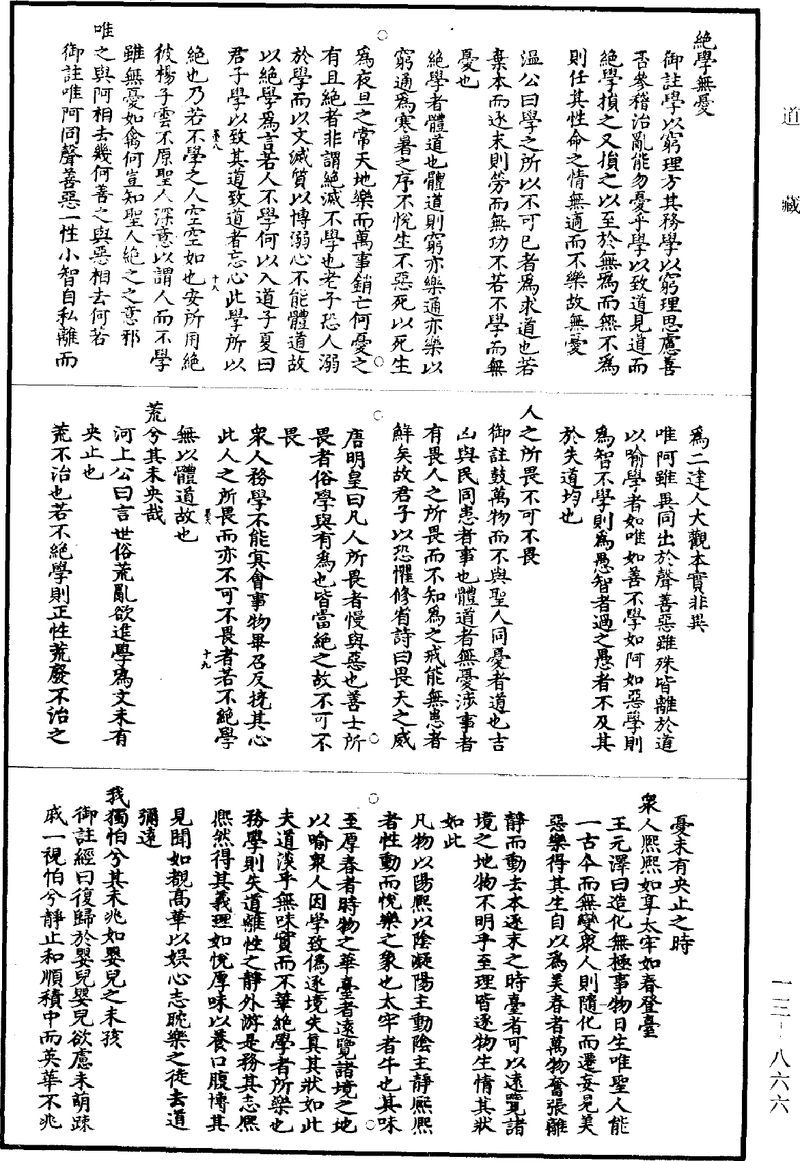 道藏
絕學無憂
御註學以窮理方其務學以窮理思慮善
否參稽治亂能勿憂乎學以致道見道而
絕學損之又損之以至於無為而無不為
則任其性命之情無適而不樂故無憂
溫公曰學之所以不可已者為求道也若
棄本而逐末則勞而無功不若不學而無
憂也
絕學者體道也體道則窮亦樂通亦樂以
窮通為寒暑之序不悅生不惡死以死生
為夜旦之常天地樂而萬事銷亡何憂之
有且絕者非謂絕滅不學也老子恐人溺
於學而以文滅質以博溺心不能體道故
以絕學為言若人不學何以入道子夏曰
君子學以致其道致道者忘心此學所以
絕也乃若不學之人空空如也安所用絕
彼楊子雲不原聖人深意以謂人而不學
雖無憂如禽何豈知聖人絕之之意邪
唯之與阿相去幾何善之與惡相去何若
御註唯阿同聲善惡一性小智自私離而
十八
為二達人大觀本實非異
唯阿雖異同出於聲善惡雖殊皆離於道
以喻學者如唯如善不學如阿如惡學則
為智不學則為愚智者過之愚者不及其
於失道均也
人之所畏不可不畏
御註鼓萬物而不與聖人同憂者道也吉
凶與民同患者事也體道者無憂涉事者
有畏人之所畏而不知為之戒能無患者
鮮矣故君子以恐懼修省詩曰畏天之威
唐明皇曰凡人所畏者慢與惡也善士所
畏者俗學與有為也皆當絕之故不可不
畏
眾人務學不能冥會事物畢召反撓其心
此人之所畏而亦不可不畏者若不絕學
無以體道故也
十九
荒兮其未央哉
河上公曰言世俗荒亂欲進學為文未有
央止也
荒不治也若不絕學則正性荒廢不治之
憂未有央止之時
眾人熙熙如享太牢如春登臺
王元澤曰造化無極事物日生唯聖人能
一古今而無變眾人則隨化而遷妄見美
惡樂得其生自以為美春者萬物奮張離
靜而動去本逐末之時臺者可以遠覽諸
境之地物不明乎至理皆逐物生情其狀
如此
凡物以陽熙以陰凝陽主動陰主靜熙熙
者性動而悅樂之象也太牢者牛也其味
至厚春者時物之華臺者遠覽諸境之地
以喻眾人因學致偽逐境失真其狀如此
夫道淡乎無味實而不華絕學者所樂也
務學則失道離性之靜外游是務其志熙
熙然得其義理如悅厚味以養口腹博其
見聞如觀高華以娛心志耽樂之徒去道
彌遠
我獨怕兮其未兆如嬰兒之未孩
御註經曰復歸於嬰兒嬰兒欲慮未萌疎
戚一視怕兮靜止和順積中而英華不兆
一三-八六六